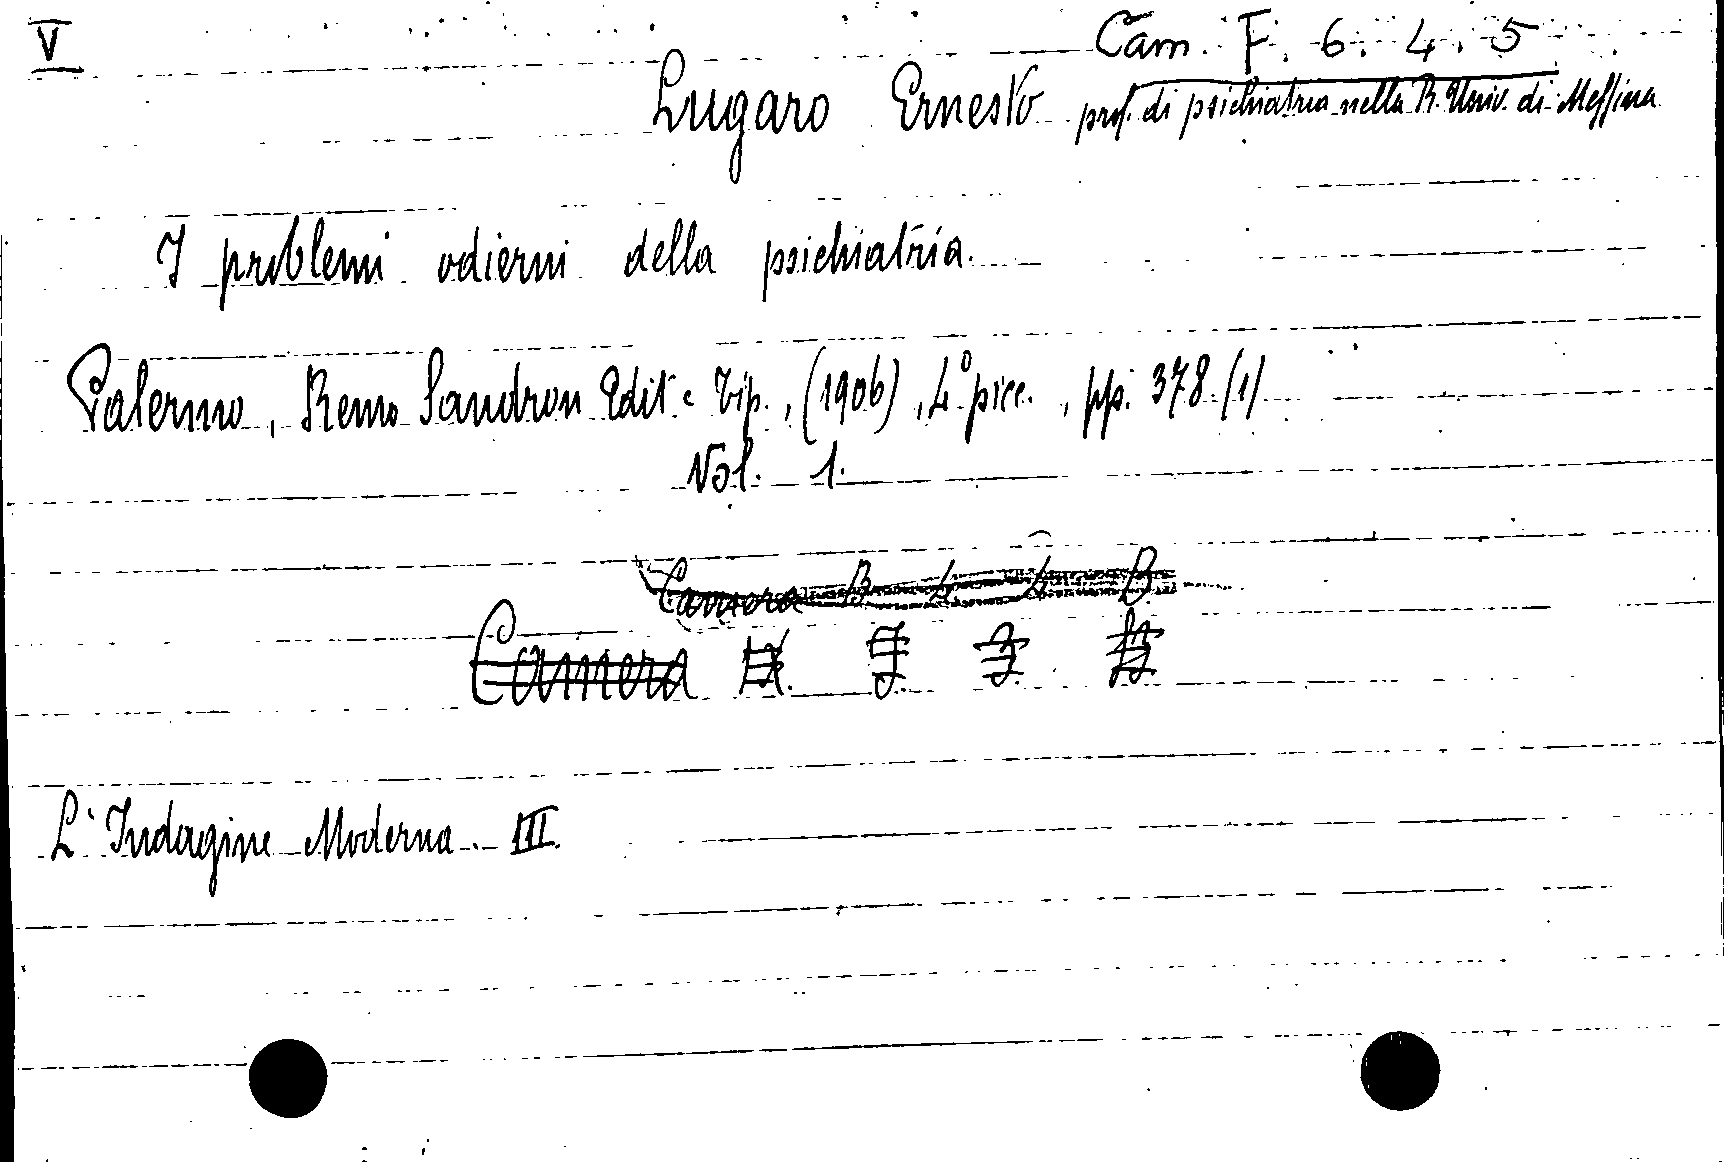 V
Cam. F. 6. 4. 5
Lugaro Ernesto prof. di psichiatria nella R. Univ. di Messina
I problemi odierni della psichiatria.
Palermo, Remo Sandron Edit. e Tip., (1906), 4° picc., pp. 378 /1/
Vol. 1.
Camera B 4 4 B
Camera
L'Indagine Moderna. III.